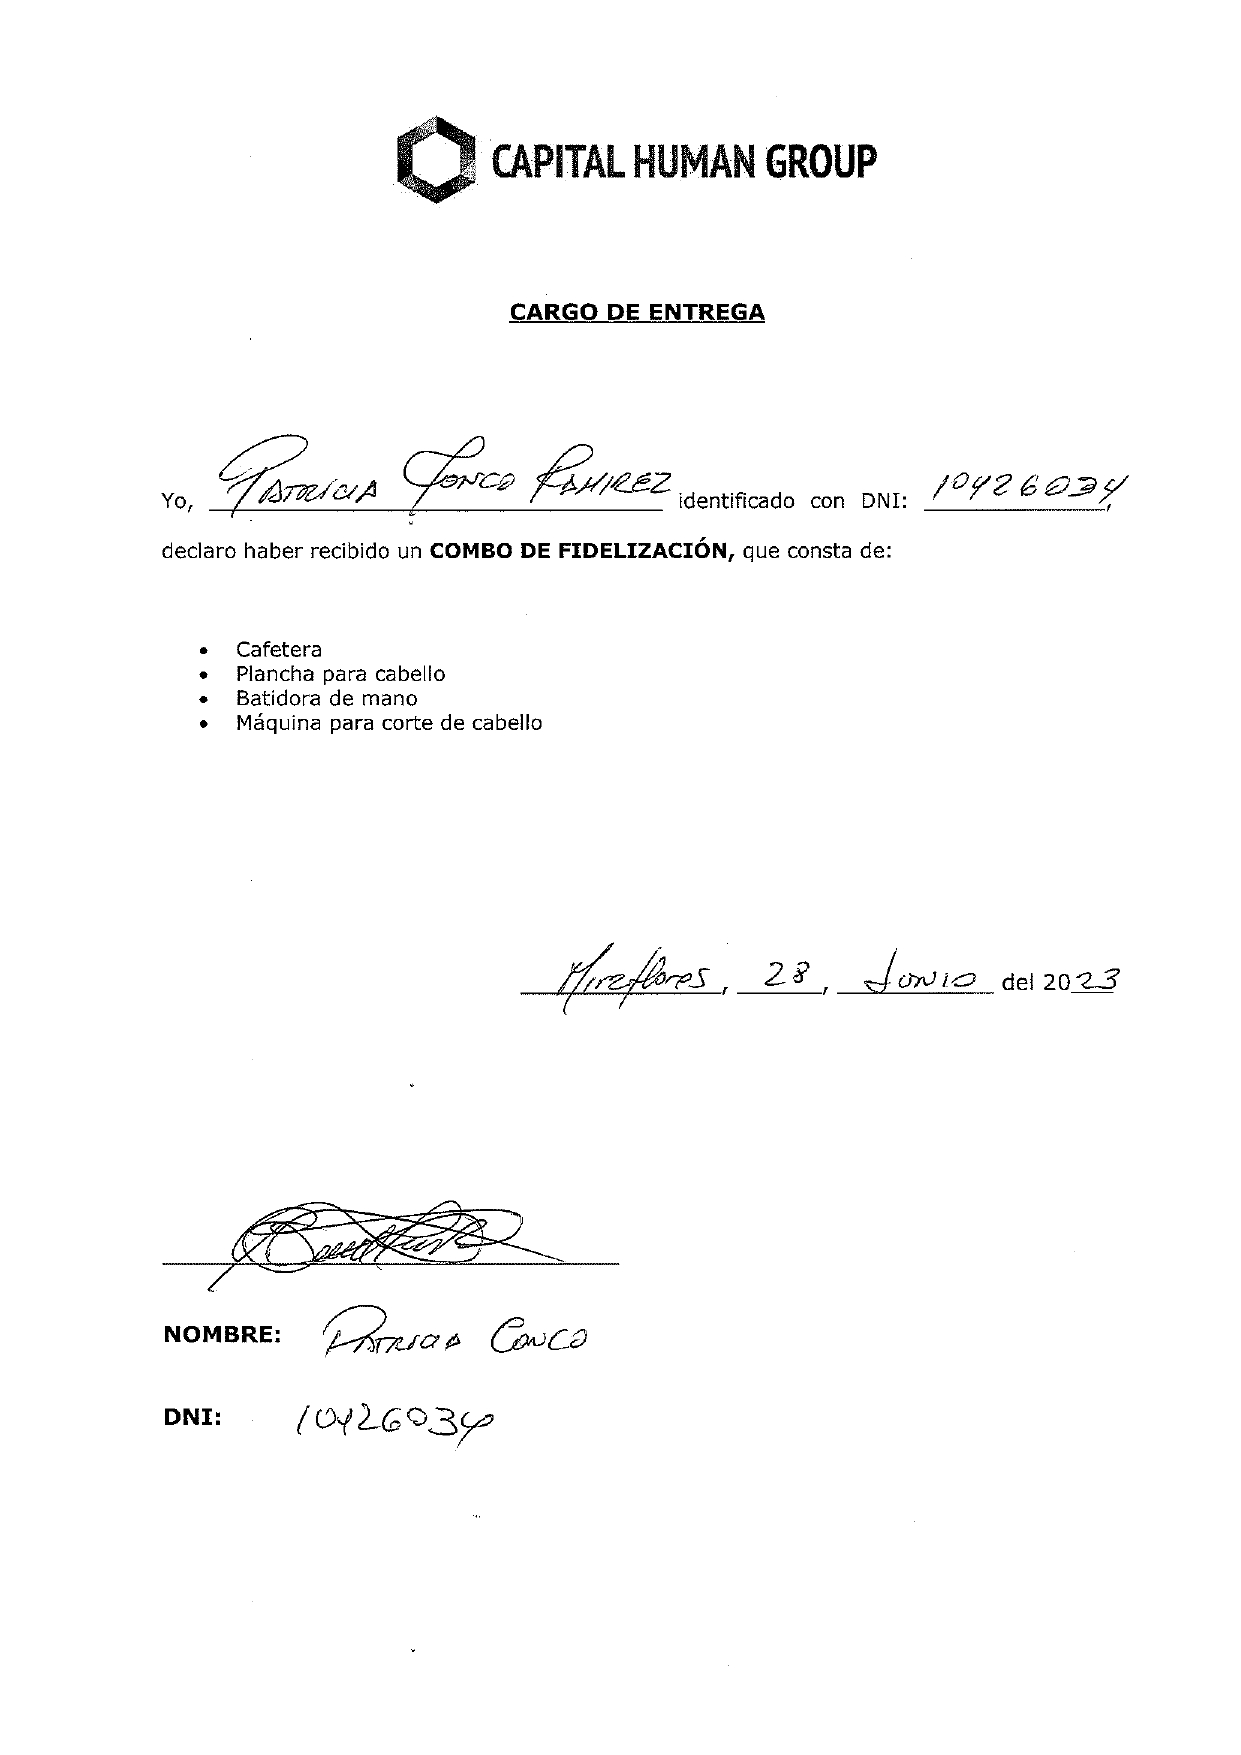 CAPITAL HUMAN GROUP
CARGO DE ENTREGA
Yo, PATRICIA CONCO RAMIREZ identificado con DNI: 10426034,
declaro haber recibido un COMBO DE FIDELIZACIÓN, que consta de:
• Cafetera
• Plancha para cabello
• Batidora de mano
• Máquina para corte de cabello
Miraflores, 28, Junio del 2023
NOMBRE: PATRICIA CONCO
DNI: 10426034